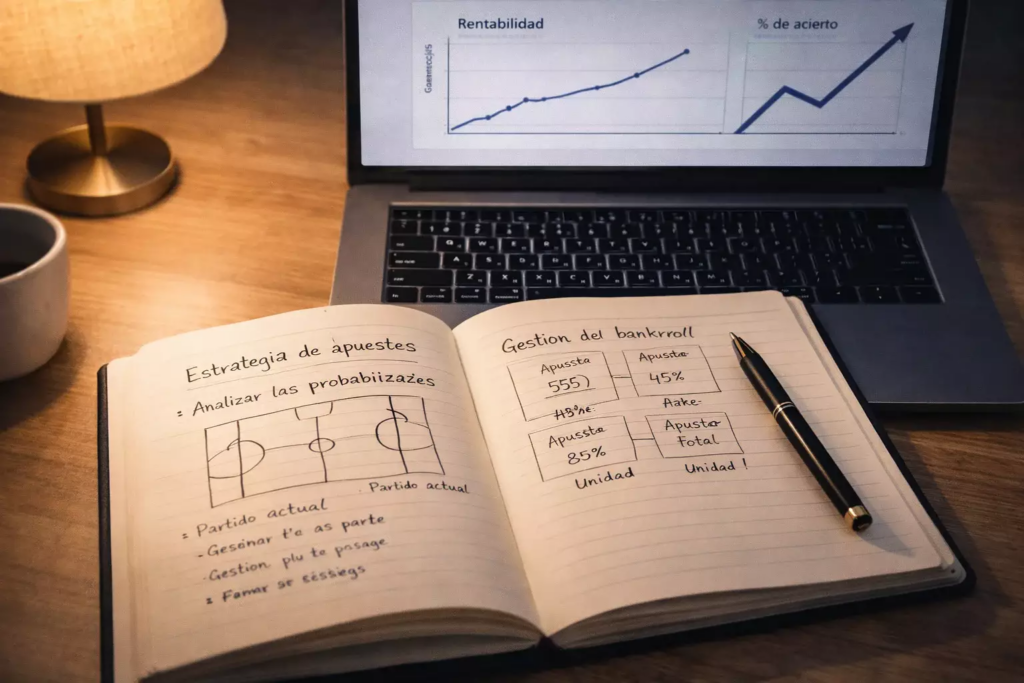 Rentabilidad
% de acierto
Estrategia de apuestes
: Analizar las probabiizazes
Partido actual
: Partido actual
- Gesënar t'e as parte
· Gestion plu te posage
: Fomar se
Gestion del bankrroll
Apussta
555)
Apusta
45%
Aake-
Apussta
85%
Apustar
Fotal
Unidad
Unidad !